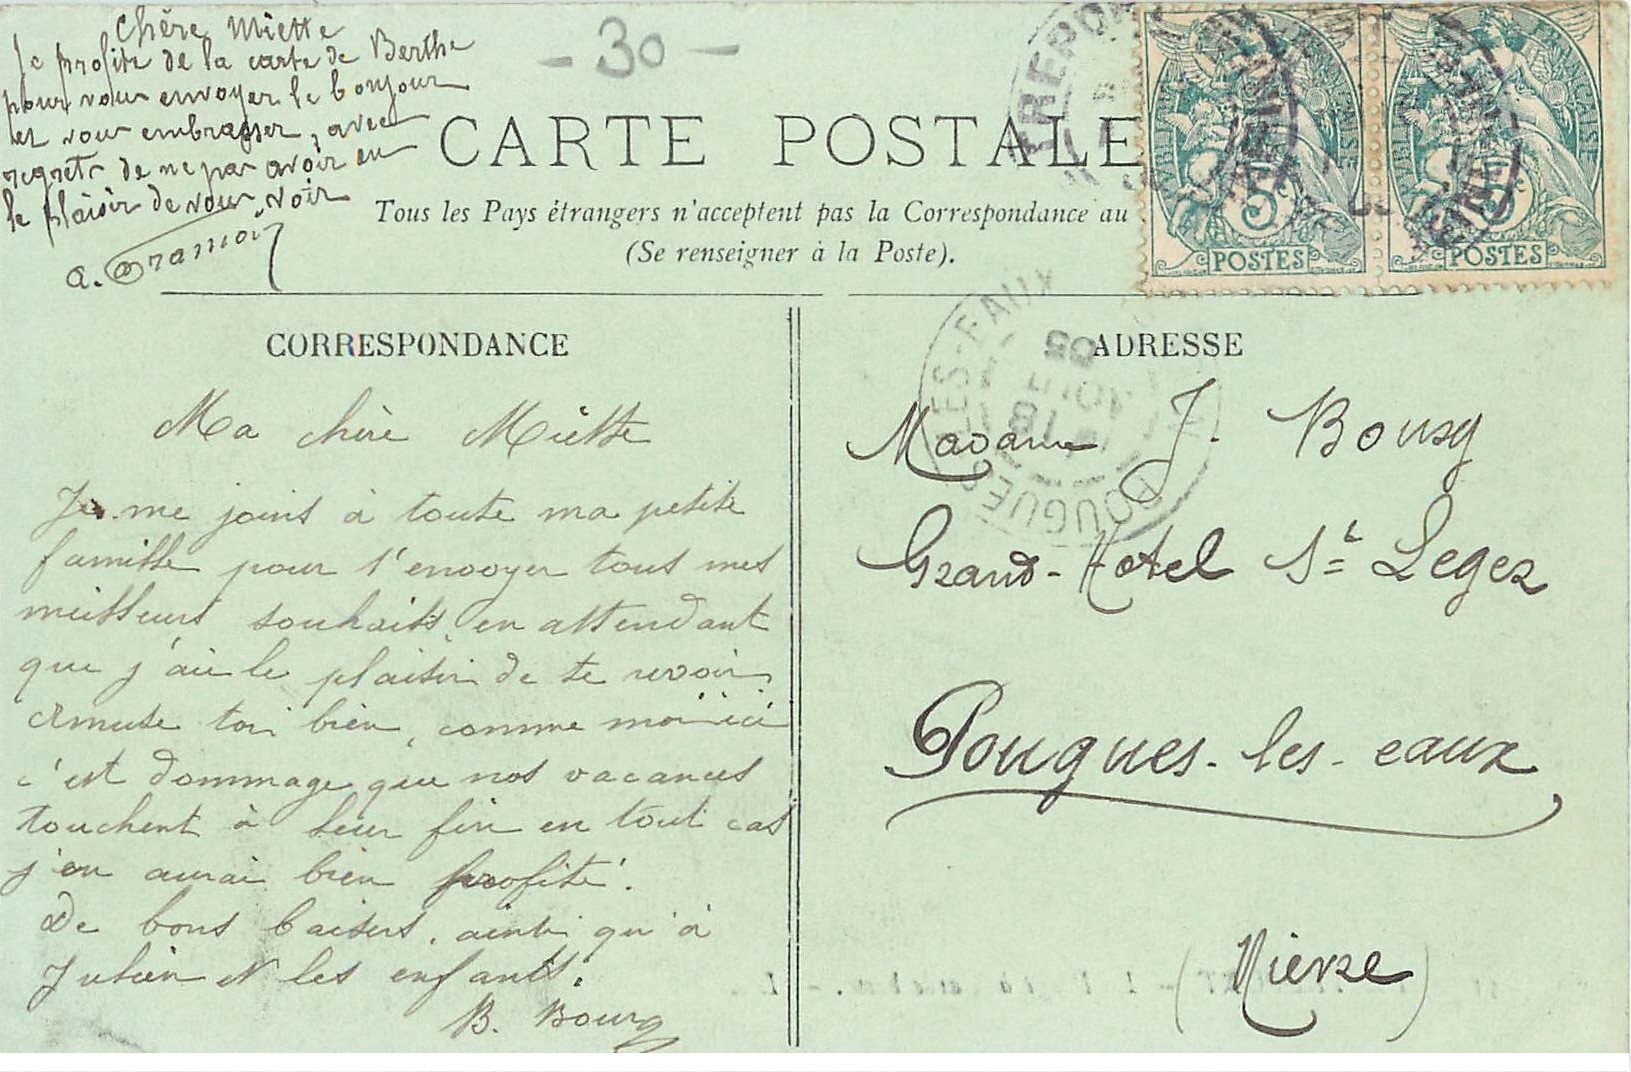 Chère Miette
Je profite de la carte de Berthe
pour vous envoyer le bonjour
et vous embrasser, avec
regrets de ne pas avoir eu
le plaisir de vous voir
- 30 -
CARTE POSTALE
Tous les Pays étrangers n'acceptent pas la Correspondance au
(Se renseigner à la Poste).
5
POSTES
5
POSTES
CORRESPONDANCE
Ma chère Miette
Je me joins à toute ma petite
famille pour t'envoyer tous mes
meilleurs souhaits, en attendant
que j'aie le plaisir de te revoir
Amuse toi bien, comme moi ici
c'est dommage que nos vacances
touchent à leur fin en tout cas
j'en aurai bien profité.
De bons baisers, ainsi qu'à
Julien et les enfants.
B. Bourg
POUGUES-LES-EAUX
18
AOUT
05
ADRESSE
Madame J. Bourg
Grand-Hotel St Leger
Pougues-les-eaux
(Nièvre)